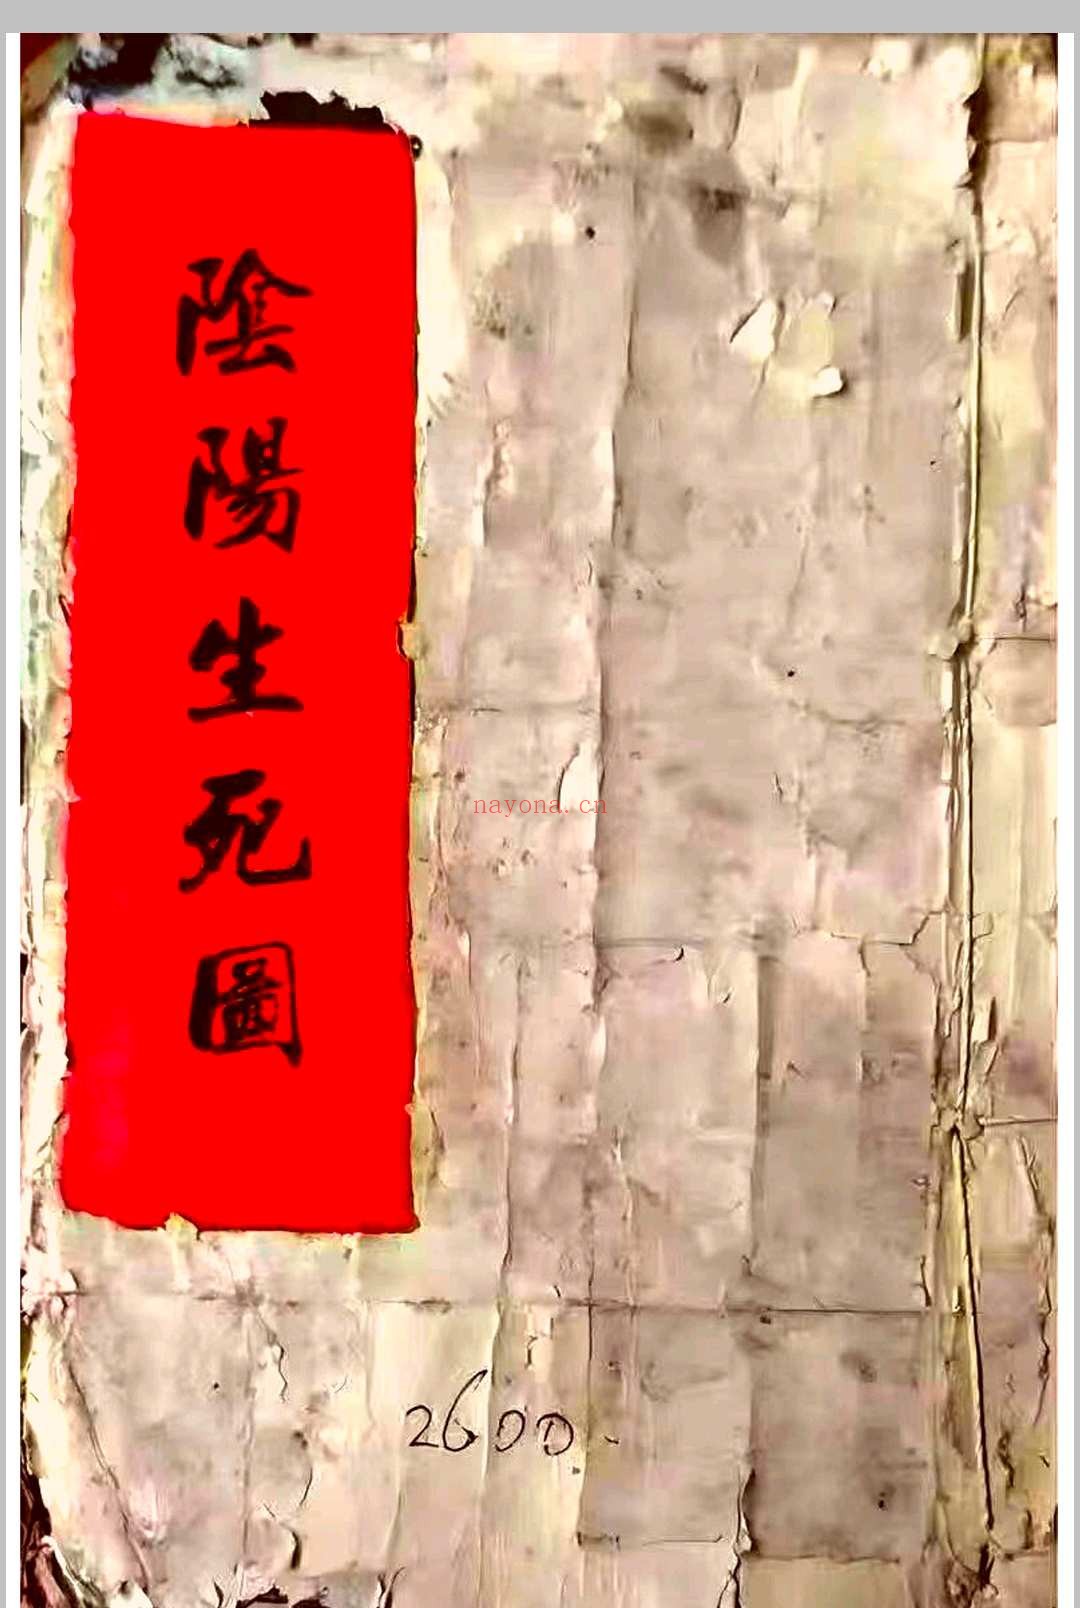 陰陽生死圖
nayona.cn
2600